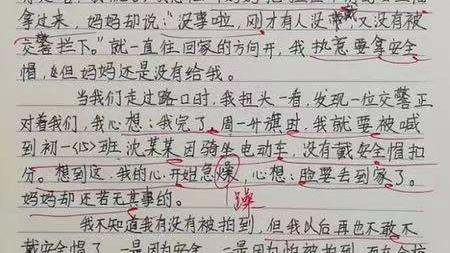 拿过来，妈妈却说："没事啦，刚才有人没戴，又没有被
交警拦下。"就一直往回家的方向开，我执意要拿安全
帽，但妈妈还是没有给我。
当我们走过路口时，我扭头一看，发现一位交警正
对着我们，我心想：我完了，周一升旗时，我就要被喊
到初一〈15〉班沈某某因骑坐电动车，没有戴安全帽扣
分。想到这，我的心开始急爆，心想：脸要丢到家了。
躁
妈妈却还苦无其事的。
我不知道我有没有被拍到，但我以后再也不敢不
戴安全帽了，一是因为安全，二是因为怕被拍到